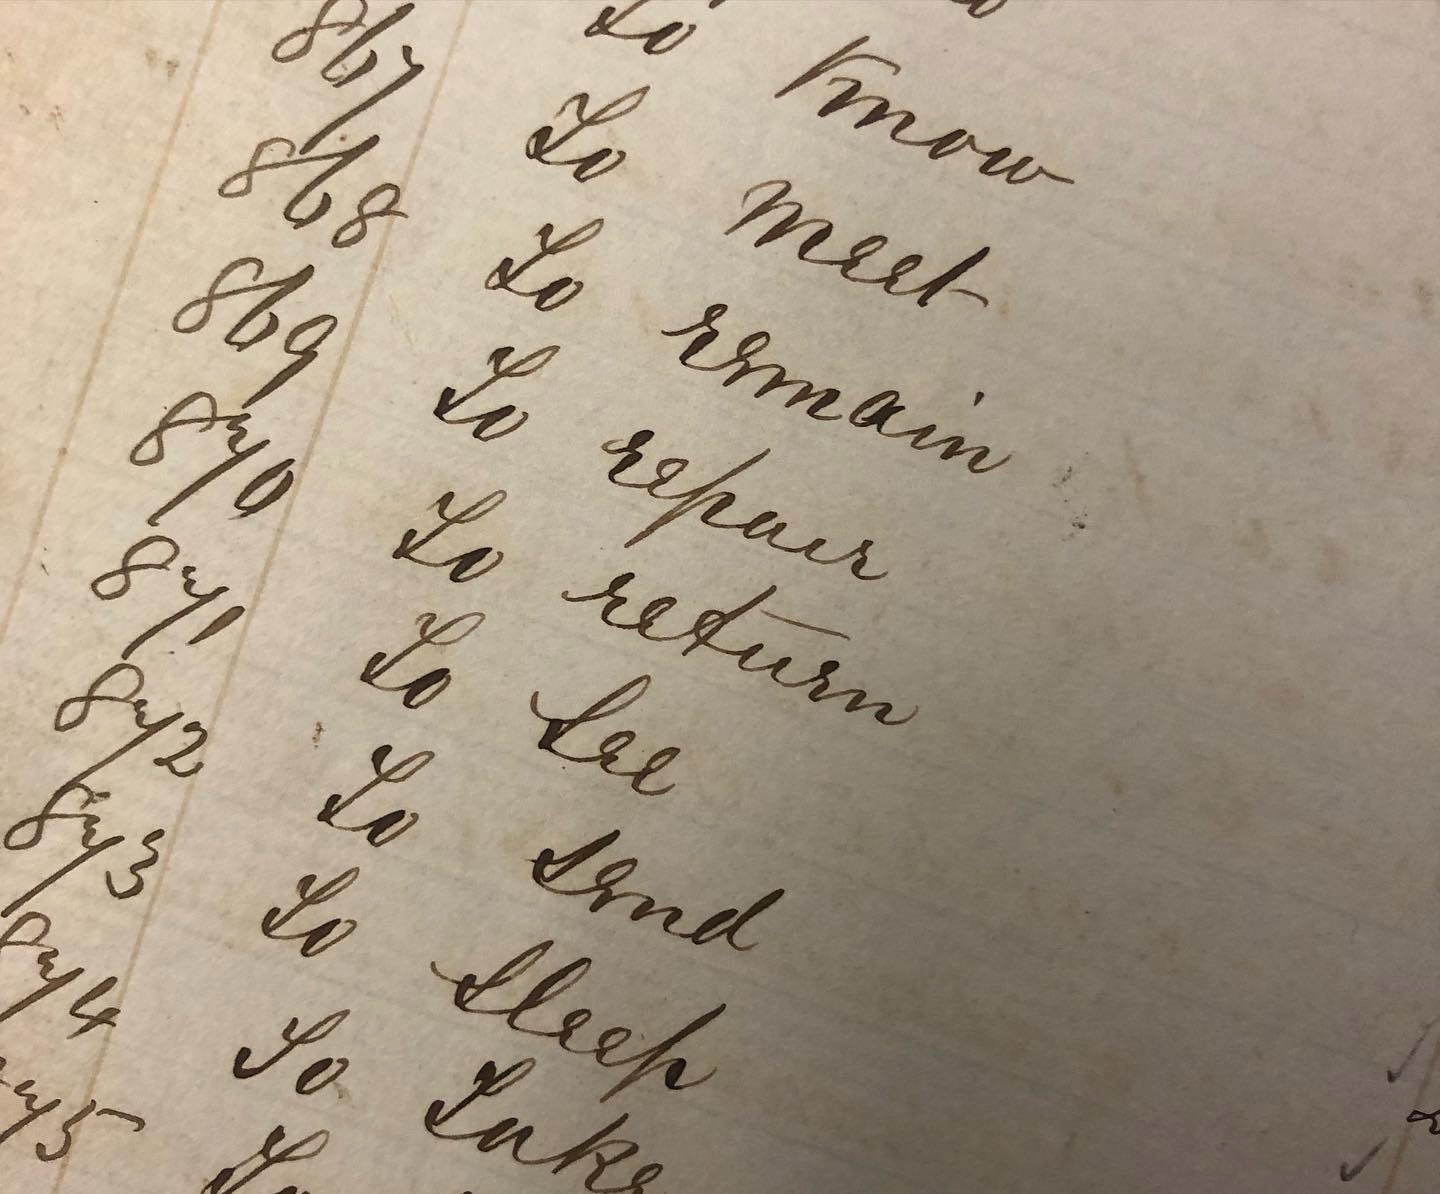 To Know
867 To meet
868 To remain
869 To repair
870 To return
871 To See
872 To send
873 To Sleep
874 To Take
75 To